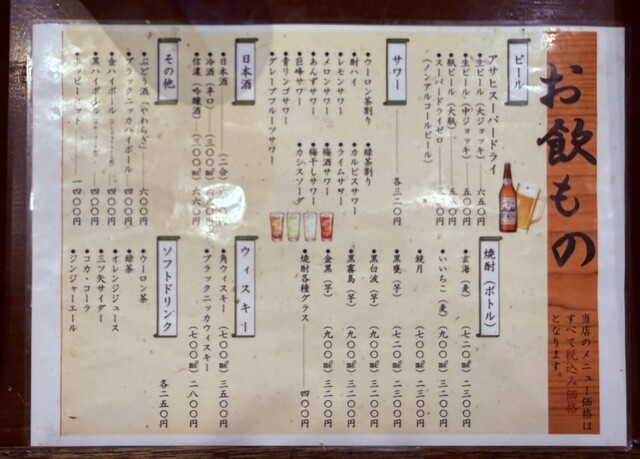 お飲もの
当店のメニュー価格は
すべて税込み価格
となります。
ビール
アサヒスーパードライ
●生ビール（大ジョッキ） 六五〇円
●生ビール（中ジョッキ） 五〇〇円
●瓶ビール（大瓶） 五八〇円
●スーパードライゼロ
（ノンアルコールビール）
サワー
各三二〇円
●ウーロン茶割り
●酎ハイ
●レモンサワー
●メロンサワー
●あんずサワー
●巨峰サワー
●青リンゴサワー
●グレープフルーツサワー
●緑茶割り
●カルピスサワー
●ライムサワー
●梅酒サワー
●梅干しサワー
●カシスソーダ
日本酒
●日本酒 （二合）
●冷酒（辛口） （三〇〇㎖）
●信濃（吟醸酒） （三〇〇㎖） 六六〇円
その他
●ぶどう酒「やわらぎ」 六〇〇円
●ブラックニッカハイボール 四〇〇円
●金ハイボール 四〇〇円
●黒ハイボール 四〇〇円
●ホッピーセット 四〇〇円
焼酎（ボトル）
●玄海（麦） （七二〇㎖） 二三〇〇円
●いいちこ（麦） （九〇〇㎖） 三二〇〇円
●鏡月 （七〇〇㎖） 二三〇〇円
●黒甕（芋） （七二〇㎖） 二三〇〇円
●黒白波（芋） （九〇〇㎖） 三二〇〇円
●黒霧島（芋） （九〇〇㎖） 三二〇〇円
●金黒（芋） （九〇〇㎖） 三二〇〇円
●焼酎各種グラス 四〇〇円
ウィスキー
●角ウィスキー （七〇〇㎖） 三五〇〇円
●ブラックニッカウィスキー
（七〇〇㎖） 二八〇〇円
ソフトドリンク
各二五〇円
●ウーロン茶
●緑茶
●オレンジジュース
●三ツ矢サイダー
●コカ・コーラ
●ジンジャーエール